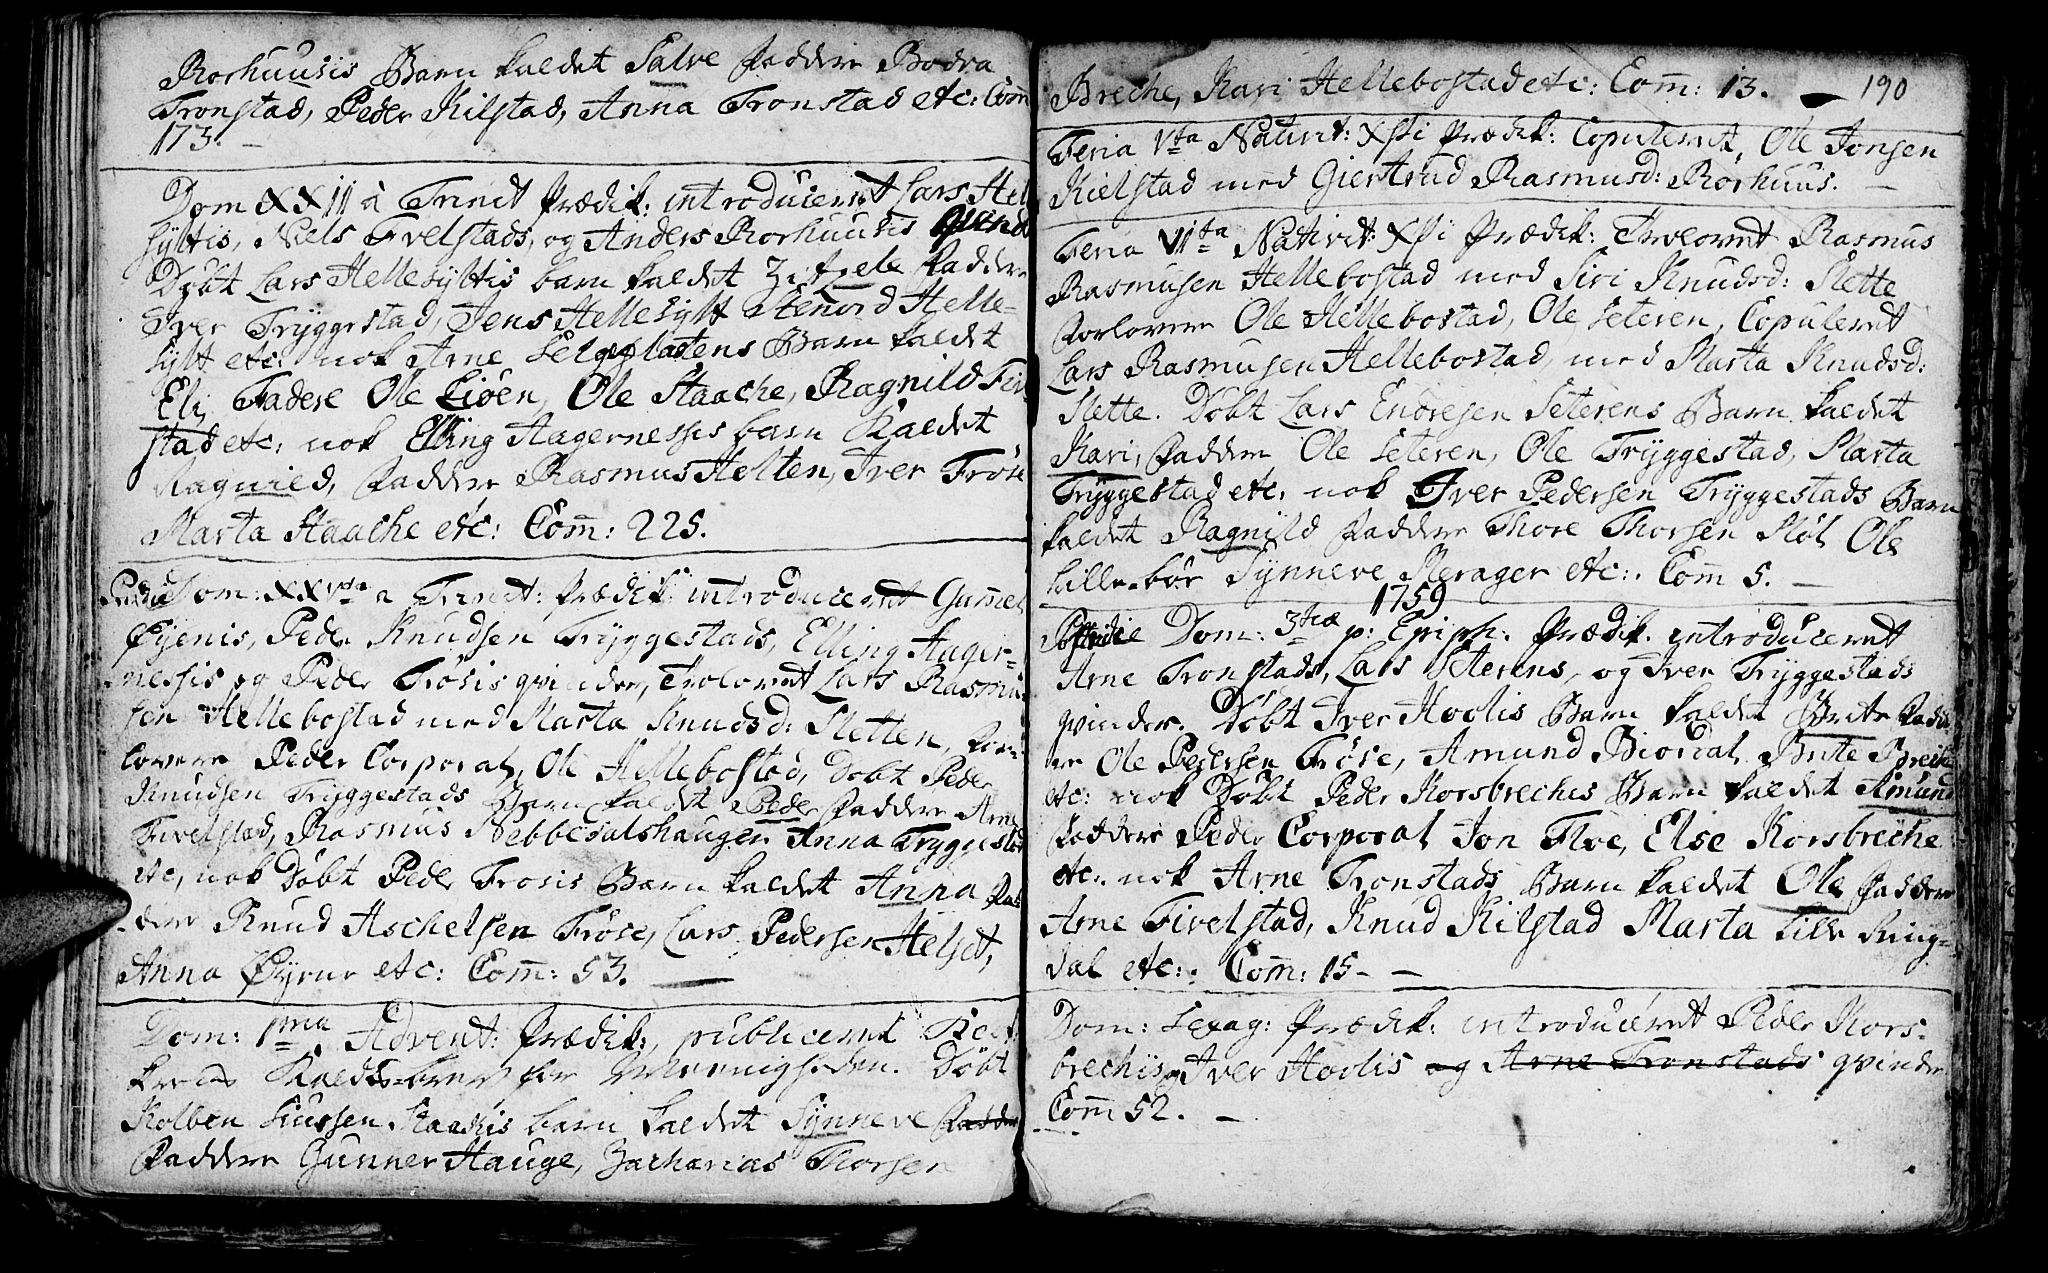 Rorhuusis Barn kaldet Salve Faddere Bodva
Tronstad, Peder Kilstad, Anna Tronstad etc: Com
173. –
Dom XXII a Trinit Prædik: introduceret Lars Hel
syltis, Niels Fivelstads, og Anders Rorhuusis qvind
Døbt Lars Hellesyltis barn kaldet Faddere
Iver Tryggestad, Jens Hellesylt Helle-
sylt etc: nok Arne barn kaldet
Eli, Fadere Ole Liøen, Ole Haache, Ragnild Fiv
stad etc: nok Elling Aagernessis barn Kaldet
Ragnild, Faddere Rasmus Holten, Iver Frøse
Marta Haache etc: Com: 225.
Dom: XXVta a Trinit: Prædik: introduceret Gummel
Øyenis, Peder Knudsen Tryggestads, Elling Aager-
nessis og Peder Frøsis qvinder, Troloved Lars Rasmu
sen Hellebostad med Marta Knudsd: Sletten, For-
lovere Peder Corporal, Ole Hellebostad, Døbt Peder
Knudsen Tryggestads Barn kaldet Peder Faddere Arne
Fivelstad, Rasmus Nebbedalshaugen Anna Tryggestad
etc, nok Døbt Peder Frøsis Barn kaldet Anna Fad
dere Knud Aschelsen Frøse, Lars Pedersen Helset,
Anna Øyrur etc: Com: 53. –
Dom: 1ma Advent: Prædik:, publiceret
for Meenigheden. Døbt
Kolben Siussen Haachis barn kaldet Synneve Fadder
Faddere Gunner Hauge, Zacharias Thorsen
Breche, Kari Hellebostad etc: Com: 13. – 190
Feria Vta Nativit: Xsti Prædik: Copuleret, Ole Jonsen
Kielstad med Giertrud Rasmusd: Rorhuus. –
Feria VIta Nativit: Xsti Prædik: Troloved Rasmus
Rasmusen Hellebostad med Siri Knudsd: Slette
Forlovere Ole Hellebostad, Ole Seteren, Copuleret
Lars Rasmusen Hellebostad, med Marta Knudsd:
Slette. Døbt Lars Endresen Seterens Barn kaldet
Kari, Faddere Ole Seteren, Ole Tryggestad, Marta
Tryggestad etc: nok Iver Pedersen Tryggestads Barn
kaldet Ragnild Faddere Thore Thorsen Støl Ole
Lillebøe Synneve Merager etc:. Com 5. –
1759
Postridie Dom: 3tia p: Epiph: Prædik. introduceret
Arne Tronstads, Lars Seterens, og Iver Tryggestads
qvinder. Døbt Iver Hovlis Barn kaldet Brite Fadde
re Ole Pedersen Frøse, Amund Biordal, Brite Breche
etc: nok Døbt Peder Korsbrechis Barn kaldet Amund
Faddere Peder Corporal Jon Floe, Else Korsbreche
etc. nok Arne Tronstads Barn kaldet Ole Faddere
Arne Fivelstad, Knud Kilstad Marta Lille Ring-
dal etc:. Com: 15 – –
Dom: Sexag: Prædik: introduceret Peder Kors-
brechis, Iver Hovlis og Arne Tronstads qvinder
Com 52. –